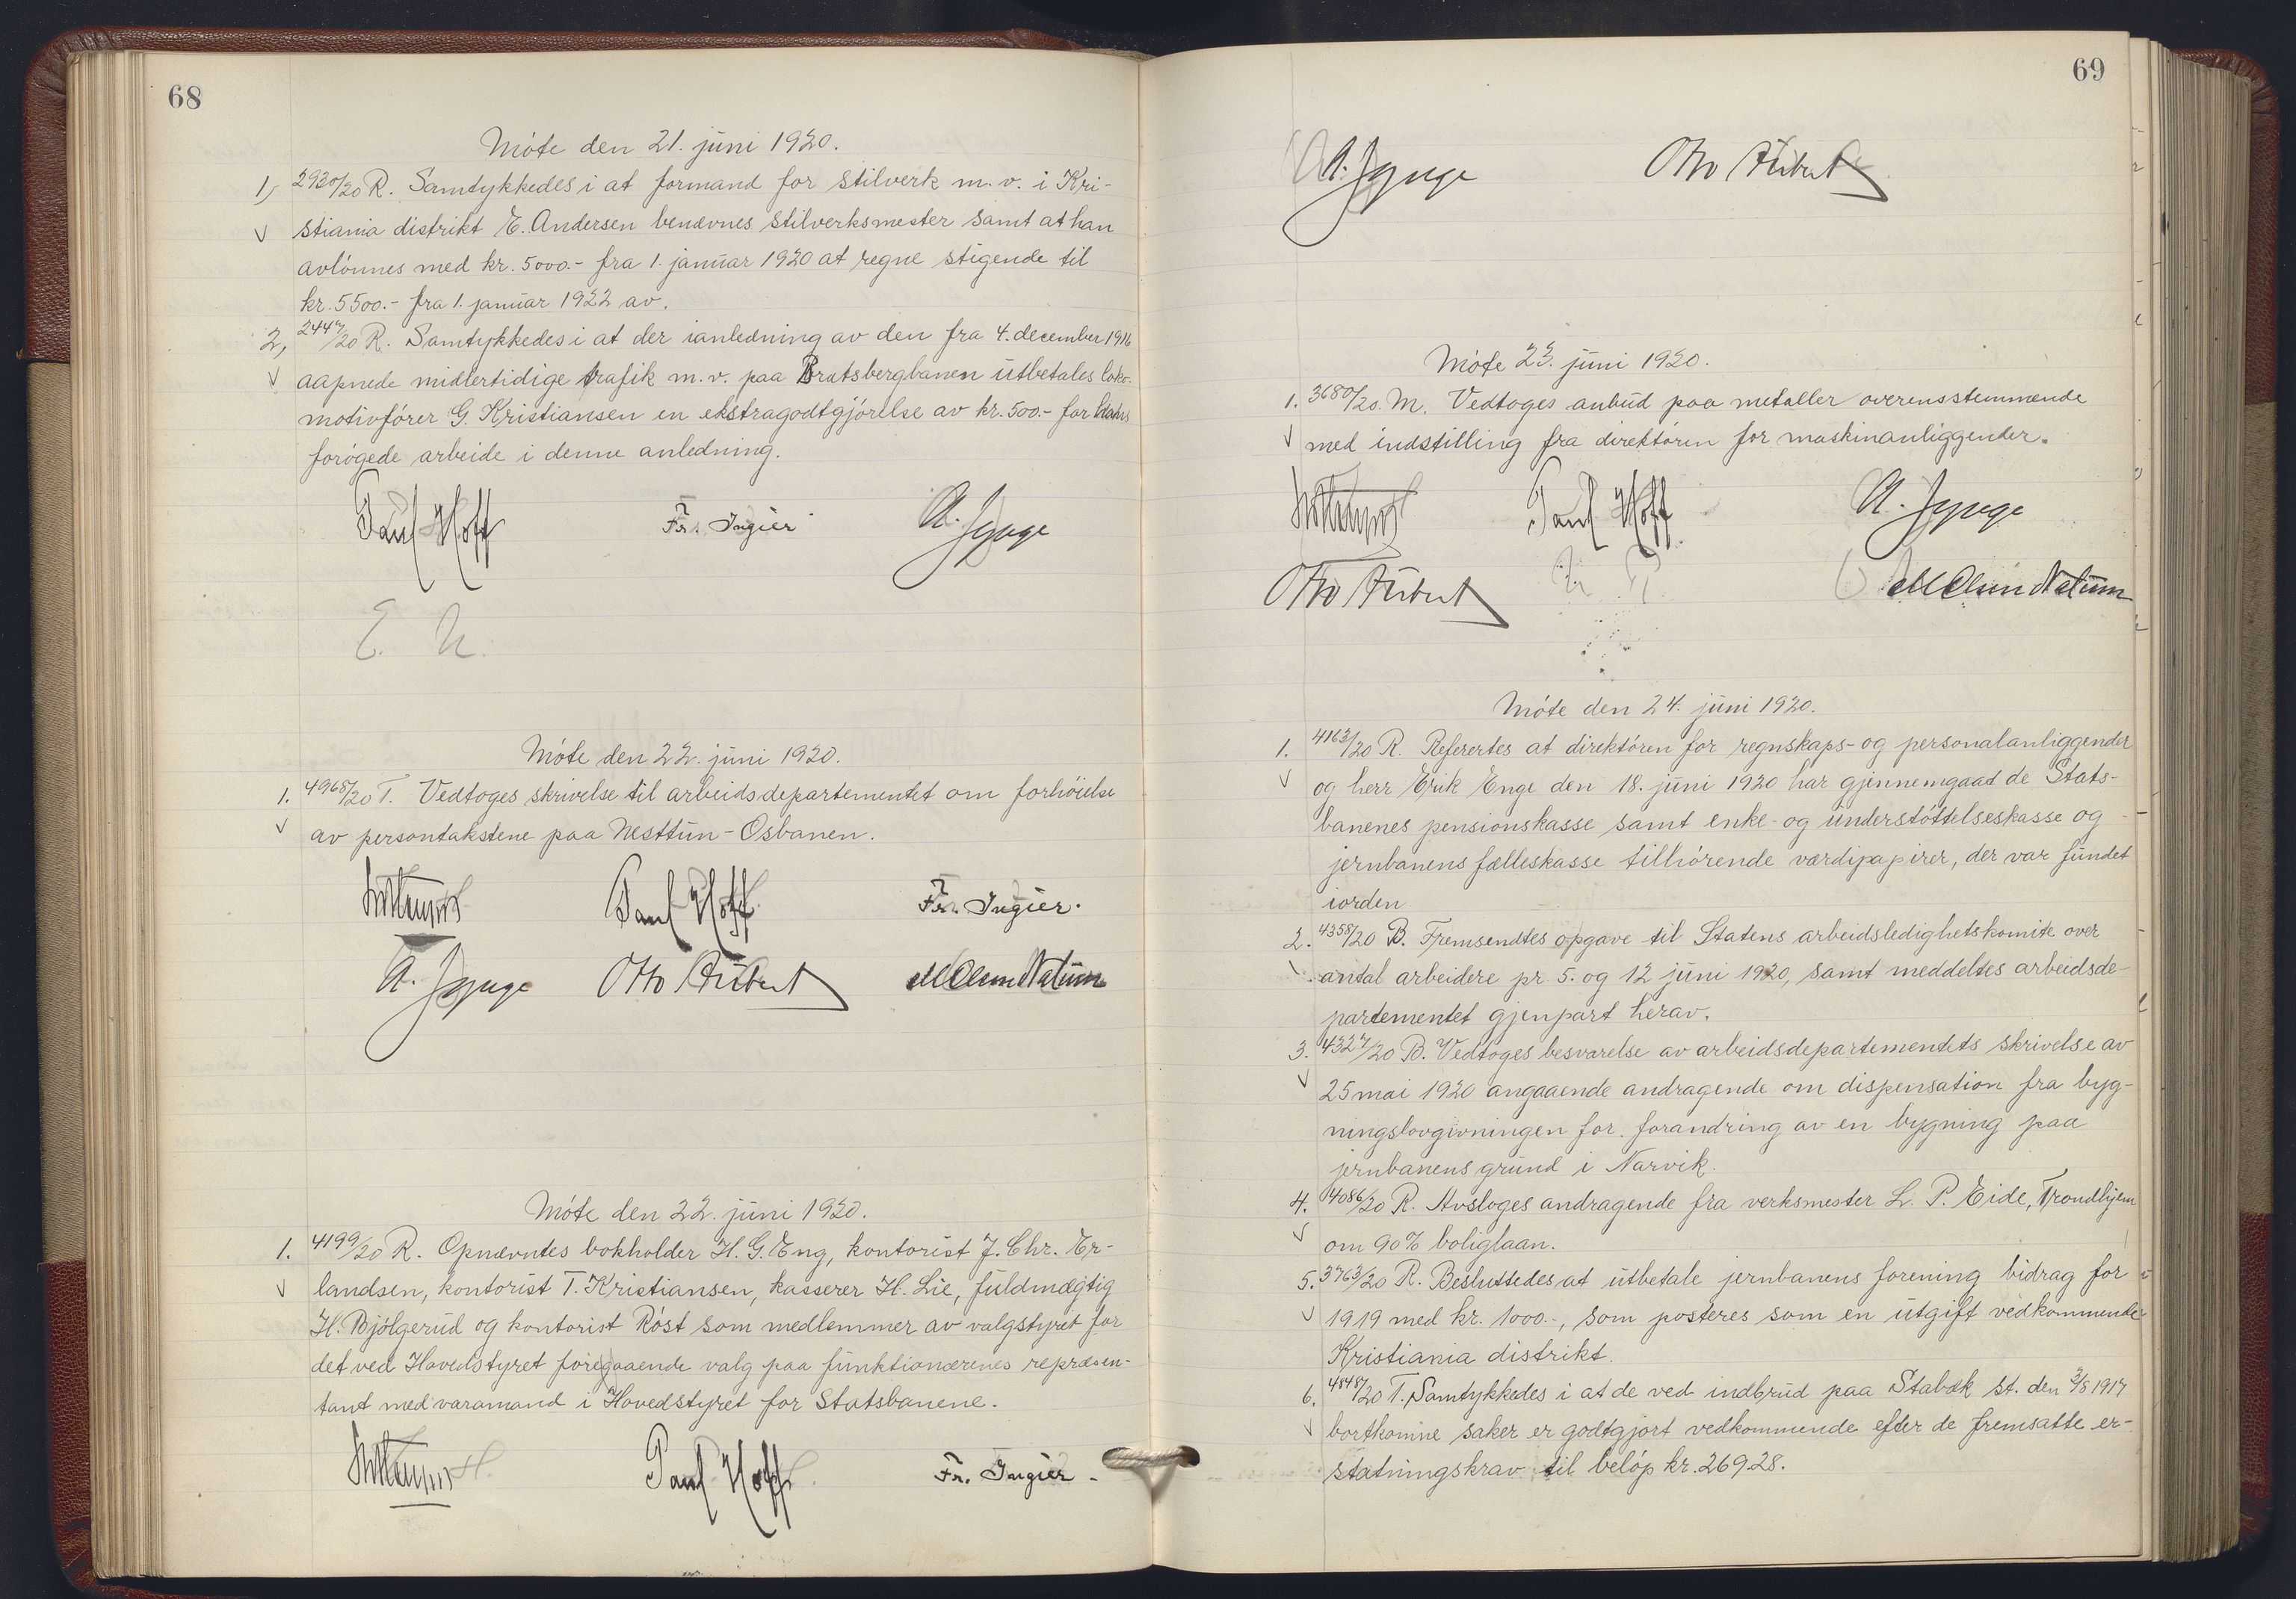 68
Møte den 21. juni 1920.
1, 2930/20 R. Samtykkedes i at formand for stilverk m. v. i Kri-
stiania distrikt E. Andersen benævnes stilverksmester samt at han
avlønnes med kr. 5000.- fra 1. januar 1920 at regne stigende til
kr. 5500.- fra 1. januar 1922 av.
2, 2447/20 R. Samtykkedes i at der ianledning av den fra 4. december 1916
aapnede midlertidige trafik m. v. paa Bratsbergbanen utbetales loko-
motivfører G. Kristiansen en ekstragodtgjørelse av kr. 500.- for
forøgede arbeide i denne anledning.
Paul Hoff Fr. Ingier
E. N.
Møte den 22. juni 1920.
1. 4968/20 T. Vedtoges skrivelse til arbeidsdepartementet om forhøielse
av persontakstene paa Nesttun-Osbanen.
Paul Hoff Fr. Ingier.
Otto Aubert
Møte den 22. juni 1920.
1. 4199/20 R. Opnævntes bokholder H. G. Eng, kontorist J. Chr. Er-
landsen, kontorist T. Kristiansen, kasserer H. Lie, fuldmægtig
H. Bjølgerud og kontorist Røst som medlemmer av valgstyret for
det ved Hovedstyret foregaaende valg paa funktionærenes repræsen-
tant med varamand i Hovedstyret for Statsbanene.
Paul Hoff Fr. Ingier
69
Otto Aubert
Møte 23. juni 1920.
1. 3680/20. M. Vedtoges anbud paa metaller overensstemmende
med indstilling fra direktøren for maskinanliggender.
Paul Hoff
Otto Aubert
Møte den 24. juni 1920.
1. 4163/20 R. Referertes at direktøren for regnskaps- og personalanliggender
og herr Erik Enge den 18. juni 1920 har gjennemgaat de Stats-
banenes pensionskasse samt enke- og understøttelseskasse og
jernbanens fælleskasse tilhørende værdipapirer, der var fundet
iorden
2. 4358/20 B. Fremsendtes opgave til Statens arbeidsledighetskomite over
antal arbeidere pr 5. og 12 juni 1920, samt meddeltes arbeidsde-
partementet gjenpart herav.
3. 4327/20 B. Vedtoges besvarelse av arbeidsdepartementets skrivelse av
25 mai 1920 angaaende andragende om dispensation fra byg-
ningslovgivningen for forandring av en bygning paa
jernbanens grund i Narvik.
4. 4086/20 R. Avsloges andragende fra verksmester L. P. Eide, Trondhjem
om 90% boliglaan.
5. 3763/20 R. Besluttedes at utbetale jernbanens forening bidrag for
1919 med kr. 1000.-, som posteres som en utgift vedkommende
Kristiania distrikt.
6. 4848/20 T. Samtykkedes i at de ved indbrud paa Stabæk st. den 3/8 1917
bortkomne saker er godtgjort vedkommende efter de fremsatte er-
statningskrav til beløp kr. 269.28.